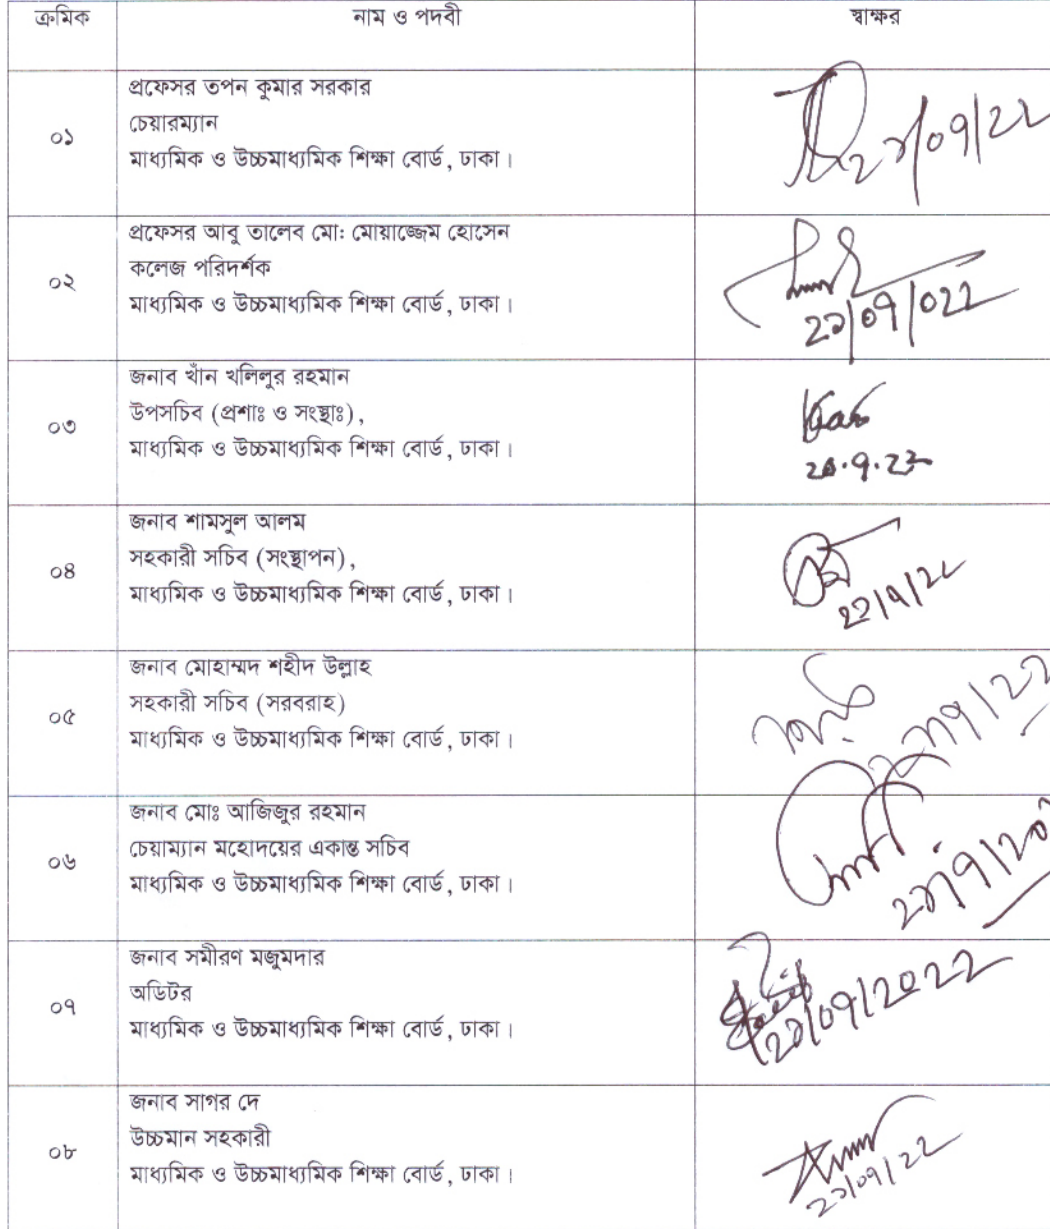 ক্রমিক নাম ও পদবী স্বাক্ষর
প্রফেসর তপন কুমার সরকার
০১ চেয়ারম্যান
মাধ্যমিক ও উচ্চমাধ্যমিক শিক্ষা বোর্ড, ঢাকা।
প্রফেসর আবু তালেব মো: মোয়াজ্জেম হোসেন
০২ কলেজ পরিদর্শক
মাধ্যমিক ও উচ্চমাধ্যমিক শিক্ষা বোর্ড, ঢাকা।
জনাব খাঁন খলিলুর রহমান
০৩ উপসচিব (প্রশাঃ ও সংস্থাঃ),
মাধ্যমিক ও উচ্চমাধ্যমিক শিক্ষা বোর্ড, ঢাকা।
জনাব শামসুল আলম
০৪ সহকারী সচিব (সংস্থাপন),
মাধ্যমিক ও উচ্চমাধ্যমিক শিক্ষা বোর্ড, ঢাকা।
জনাব মোহাম্মদ শহীদ উল্লাহ
০৫ সহকারী সচিব (সরবরাহ)
মাধ্যমিক ও উচ্চমাধ্যমিক শিক্ষা বোর্ড, ঢাকা।
জনাব মোঃ আজিজুর রহমান
০৬ চেয়াম্যান মহোদয়ের একান্ত সচিব
মাধ্যমিক ও উচ্চমাধ্যমিক শিক্ষা বোর্ড, ঢাকা।
জনাব সমীরণ মজুমদার
০৭ অডিটর
মাধ্যমিক ও উচ্চমাধ্যমিক শিক্ষা বোর্ড, ঢাকা।
জনাব সাগর দে
০৮ উচ্চমান সহকারী
মাধ্যমিক ও উচ্চমাধ্যমিক শিক্ষা বোর্ড, ঢাকা।